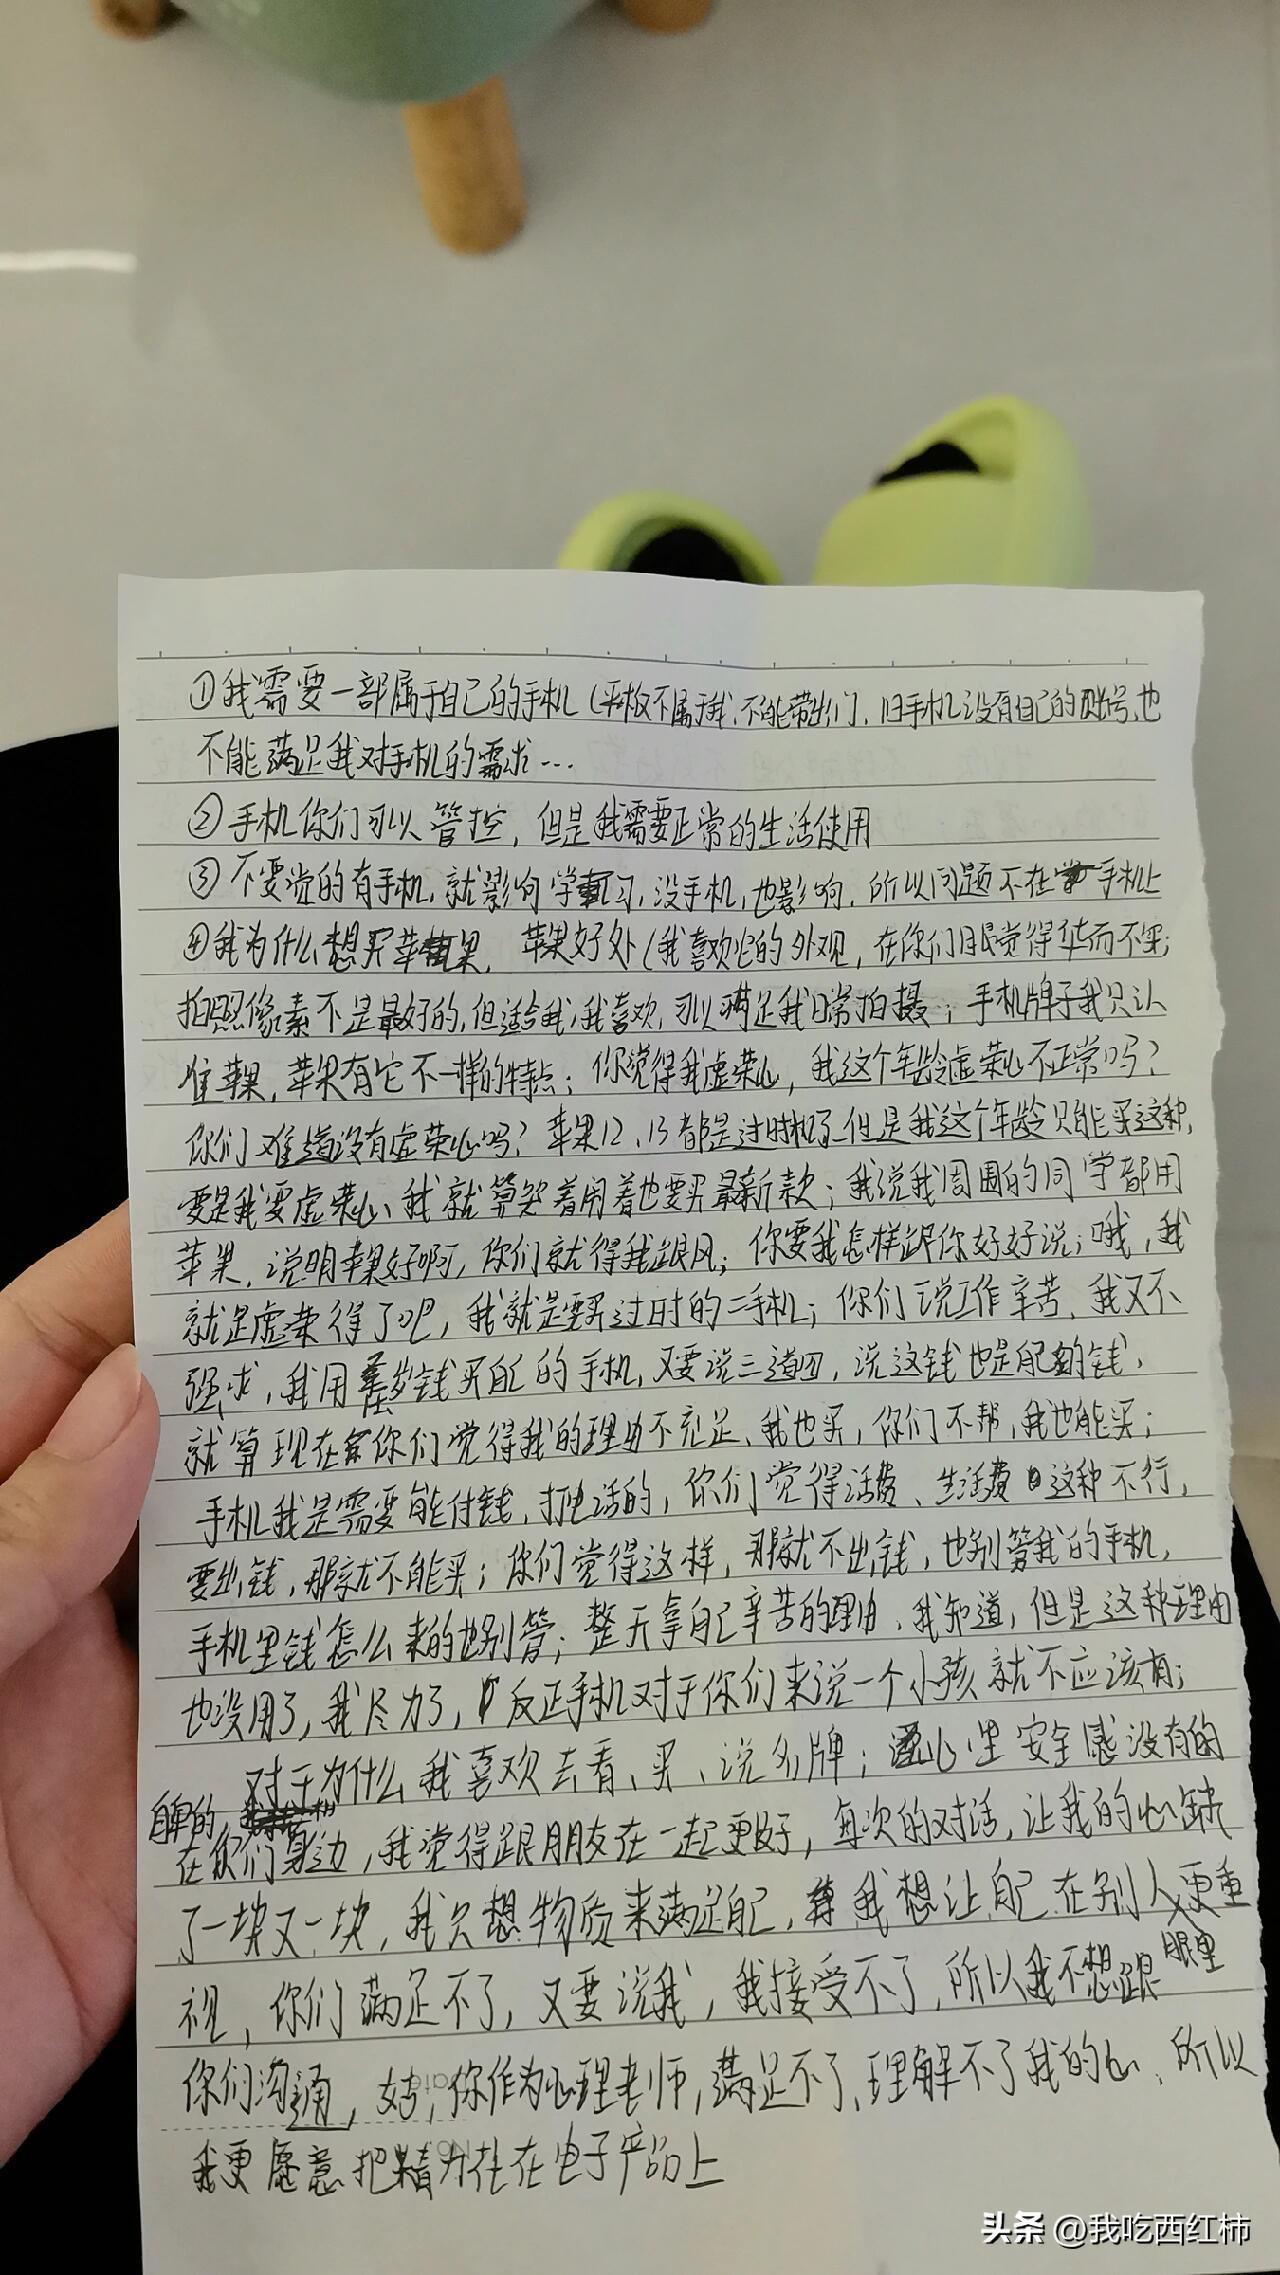 ①我需要一部属于自己的手机(平板不属于我,不能带出门,旧手机没有自己的账号,也
不能满足我对手机的需求…
②手机你们可以管控,但是我需要正常的生活使用
③不要说的有手机,就影响学习,没手机,也影响,所以问题不在手机上
④我为什么想买苹果,苹果好处(我喜欢它的外观,在你们眼觉得华而不实;
拍照像素不是最好的,但适合我,我喜欢,可以满足我日常拍摄;手机牌子我只认
准苹果,苹果有它不一样的特点;你觉得我虚荣心,我这个年龄虚荣心不正常吗?
你们难道没有虚荣心吗?苹果12、13都是过时机了但是我这个年龄只能买这种,
要是我要虚荣心、我就算哭着闹着也要买最新款;我说我周围的同学都用
苹果,说明苹果好啊,你们就得我跟风;你要我怎样跟你好好说;哦,我
就是虚荣得了吧,我就是要买过时的二手机;你们说工作辛苦,我又不
强求,我用压岁钱买自己的手机,又要说三道四,说这钱也是的钱,
就算现在你们觉得我的理由不充足、我也买,你们不帮,我也能买;
手机我是需要能付钱,打电话的,你们觉得话费、生活费这种不行,
要出钱,那就不能买;你们觉得这样,那就不出钱,也别管我的手机,
手机里钱怎么来的也别管;整天拿自己辛苦的理由、我知道,但是这种理由
也没用了,我尽力了,反正手机对于你们来说一个小孩就不应该有;
对于为什么我喜欢去看、买、说名牌;心里安全感没有的
自卑的,
在你们身边,我觉得跟朋友在一起更好,每次的对话,让我的心缺
了一块又一块,我只想物质来满足自己,我想让自己在别人更重
眼里
视,你们满足不了,又要说我,我接受不了,所以我不想跟
你们沟通,姑,你作为心理老师,满足不了、理解不了我的心、所以
我更愿意把精力在在电子产品上
头条 @我吃西红柿